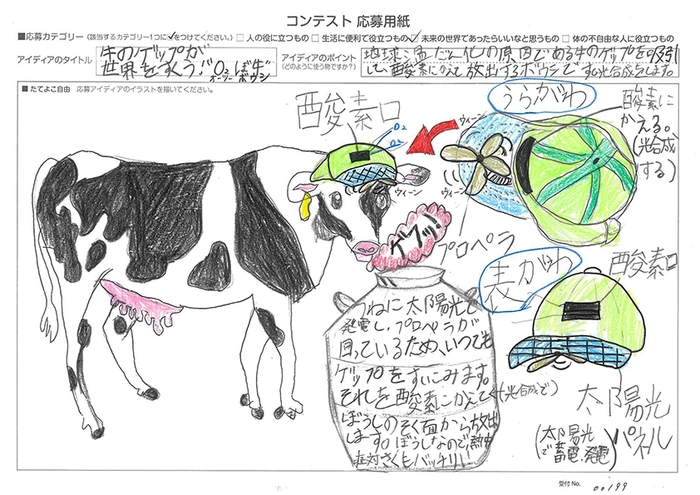 コンテスト 応募用紙
■応募カテゴリー (該当するカテゴリー1つに✓をつけてください。) □ 人の役に立つもの □ 生活に便利で役立つもの ☑ 未来の世界であったらいいなと思うもの □ 体の不自由な人に役立つもの
アイディアのタイトル
牛のゲップが
世界をすくう!! O₃ぼ牛
オーツー ボウシ
アイディアのポイント
(どのように使う物ですか?)
地球温だん化の原因である牛のゲップを吸引
し、酸素にかえて放出するボウシです。光合成をします。
■たてよこ自由 応募アイディアのイラストを描いてください。
酸素口
O₂
O₂
ウィーン
ゲフッ!
プロペラ
うらがわ
ウィーン
ウィーン
酸素に
かえる。
(光合成
する)
表がわ
酸素口
太陽光
パネル
(太陽光
で蓄電、発電)
つねに太陽光で
発電し、プロペラが
回っているため、いつでも
ゲップをすいこみます。
それを酸素にかえて(光合成で)
ぼうしのそく面から放出
します。ぼうしなので熱中
症対さくもバッチリ!
受付 No. 00199